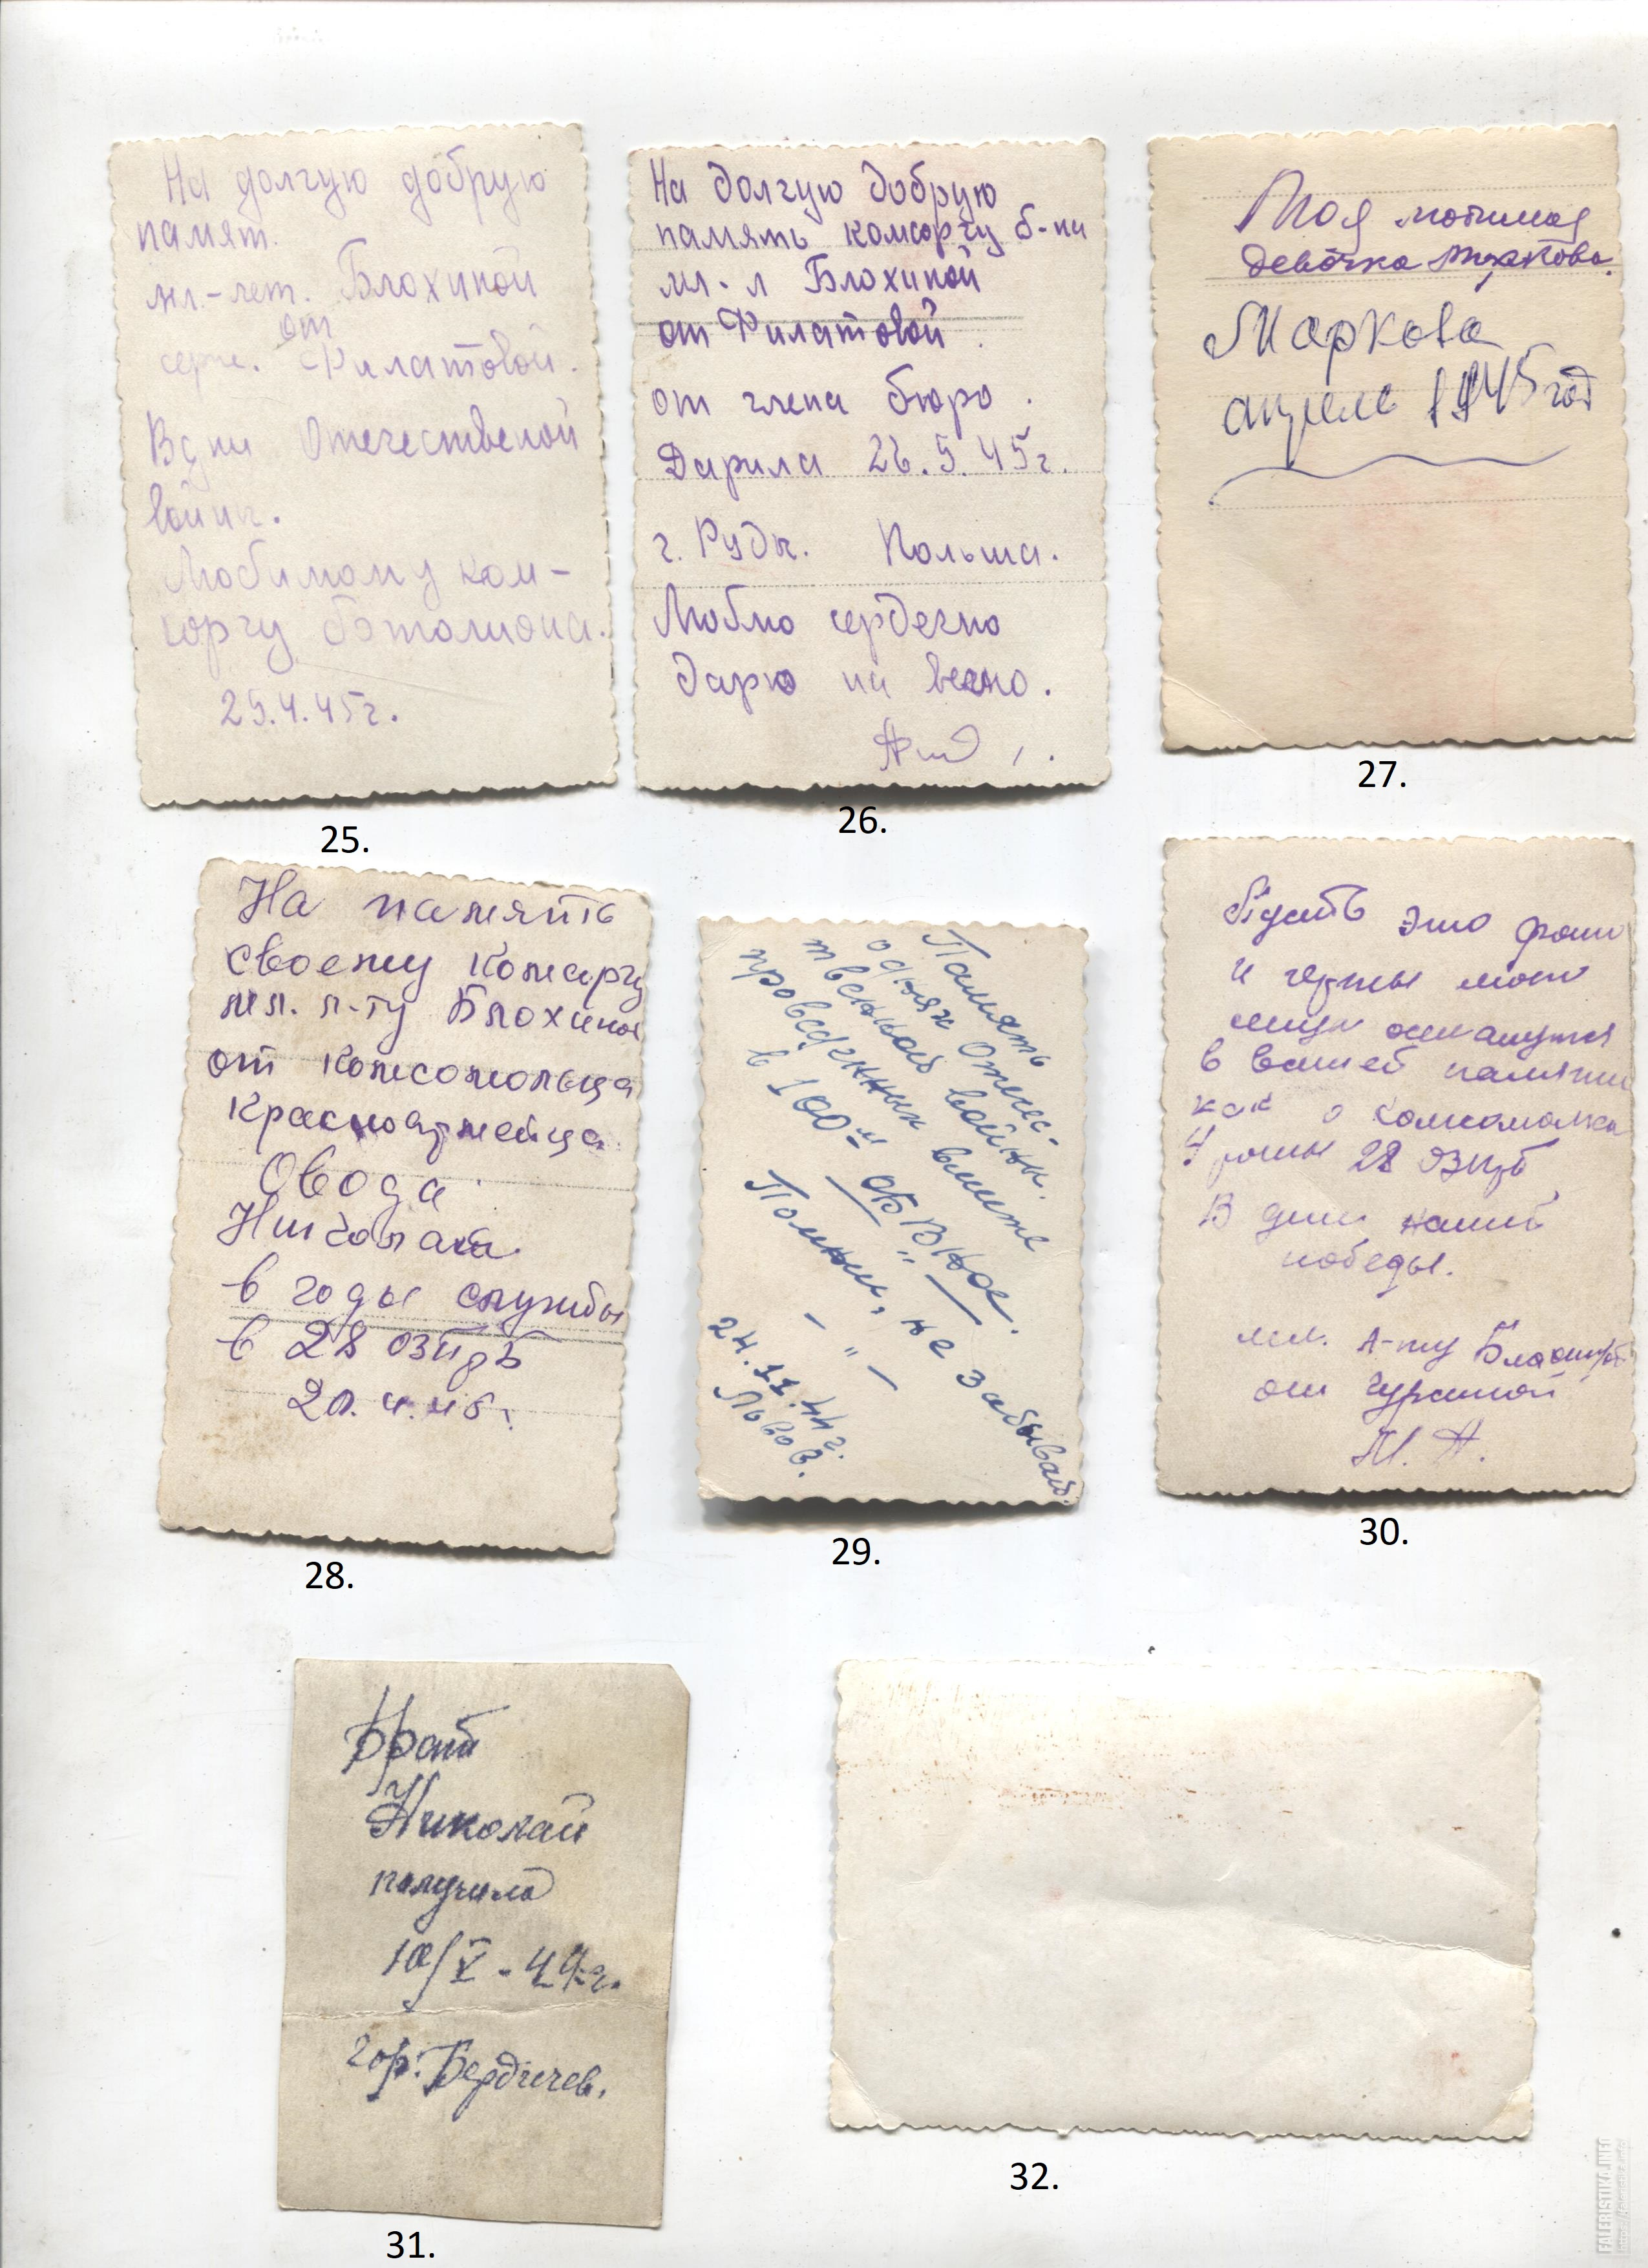 На долгую добрую
памят.
мл.-лет. Блохиной
от
серж. Филатовой.
В дни Отечественой
войны.
Любимому ком-
соргу батолиона.
25.4.45г.
25.
На долгую добрую
память комсоргу б-на
мл. л Блохиной
от Филатовой
от члена бюро.
Дарила 26.5.45г.
г. Руды. Польша.
Люблю сердечно
дарю на вечно.
26.
Моя любимая
девочка Маркова.
Маркова
апрель 1945 год
27.
На память
своему Комсоргу
мл. л-ту Блохиной
от комсомольца
Красноармейца
Овода
Николая
в годы службы
в 28 озпрб
20.4.45г.
28.
Память
о днях Отечес-
твенной войны.
проведенных вместе
в 100-м ОБВНОС.
Помни, не забывай.
24.11.44г.
Львов.
29.
Пусть это фото
и черты мои
останутся
в вашей памяти
как о комсомолке
4 роты 28 озпрб
В дни нашей
победы.
мл. л-ту Блохиной
от Чуриной
М. А.
30.
Брат
Николай
получила
10/V - 44г.
гор. Бердичев.
31.
32.
FALERISTIKA.INFO